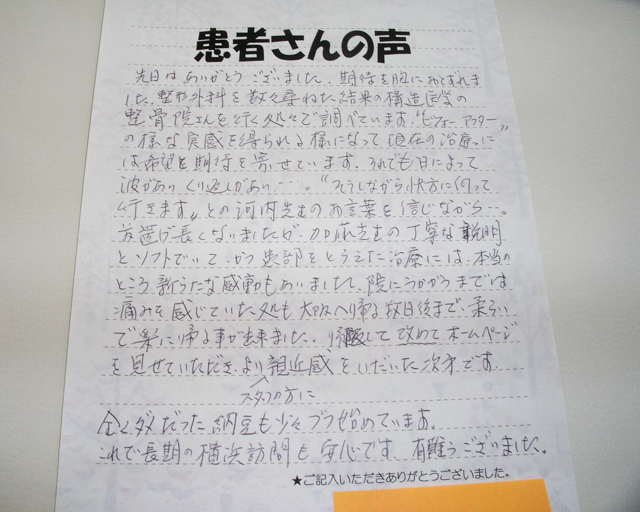 患者さんの声
先日はありがとうございました。期待を胸におとずれま
した。整形外科を数々尋ねた結果の構造医学の
整骨院さんを行く処々で調べています。"ビフォーアフター"
の様な実感を得られる様になって現在の治療に
は希望と期待を寄せています。それでも日によって
波があり くり返しがあり・・・。"そうしながら快方に向って
行きます"との河内先生のお言葉を信じながら・・。
放置が長くなりましたが、加藤先生の丁寧な説明
とソフトでいて、かつ患部をとらえた治療には、本当の
ところ新らたな感動もありましたし、院にうかがうまでは
痛みを感じていた処も大阪へ帰る数日後まで、柔らい
で楽に帰る事が出来ました。帰阪して改めてホームページ
を見せていただき、より親近感をいだいた次第です。
スタッフの方に
全くダメだった納豆も少々プラ始めています。
これで長期の横浜訪問も安心です。有難うございました。
★ご記入いただきありがとうございました。